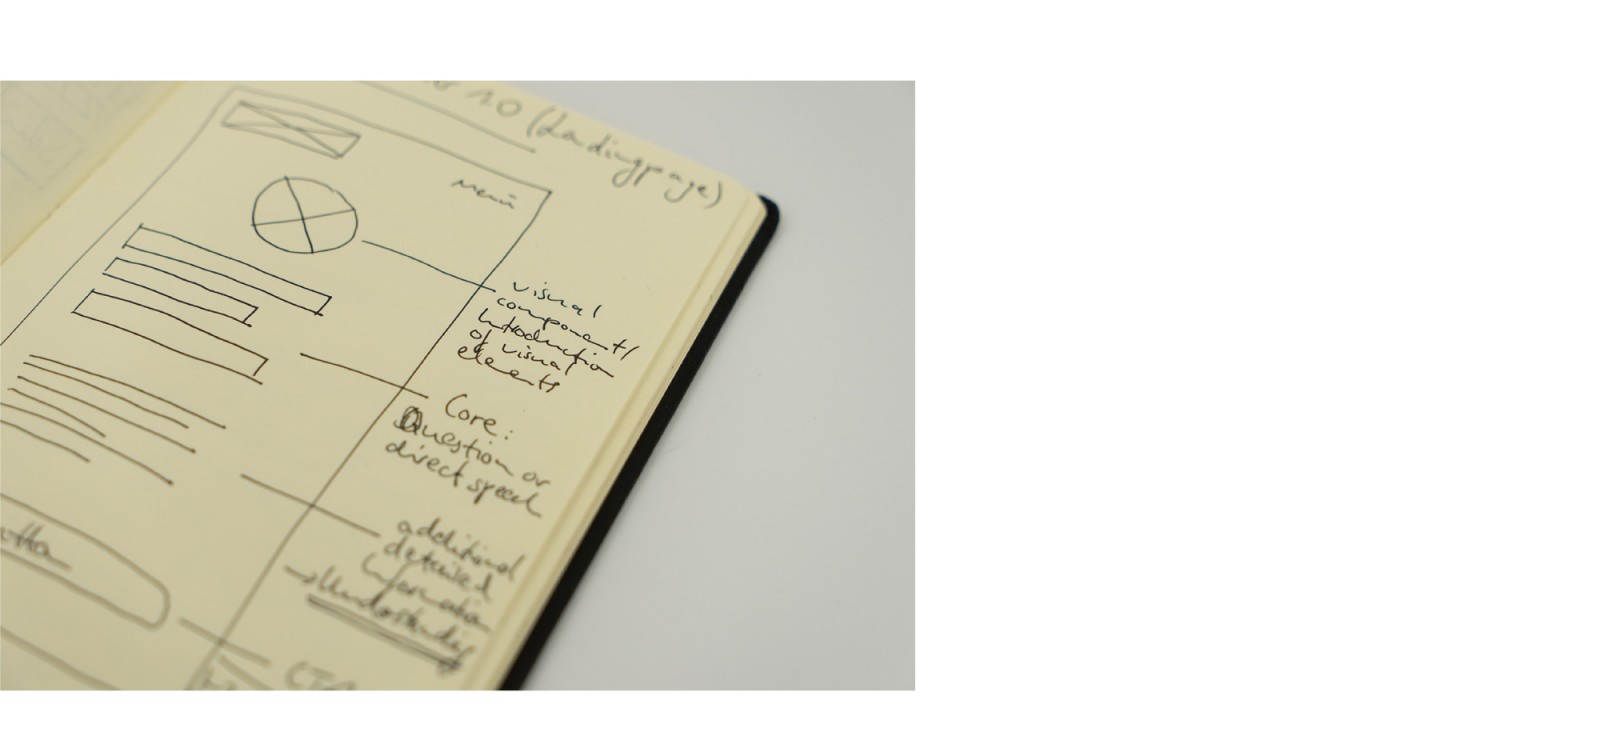 1.0 (Landingpage)
Menü
visual
component/
Introduction
of visual
elements
Core:
Question or
direct speech
additional
detailed
Information
→ Understanding
CTA